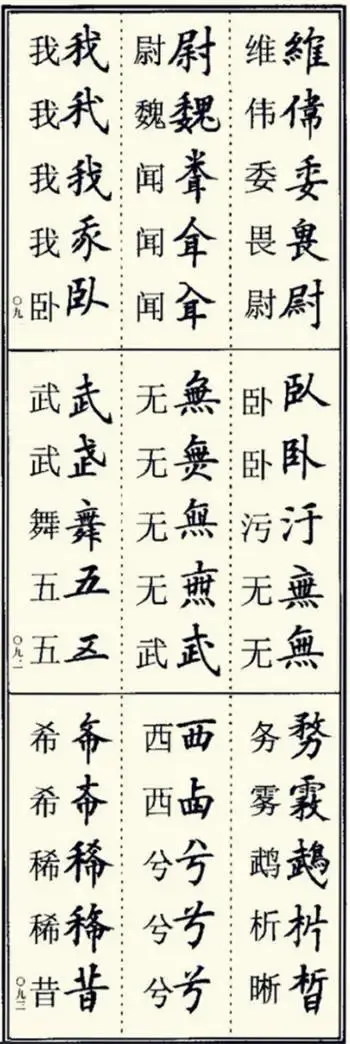 維偉委畏尉
维伟委畏尉
尉魏
尉魏闻闻闻
我我我我臥
我我我我卧
〇九一
臥卧汙無無
卧卧污无无
無無無無武
无无无无武
武武舞五五
武武舞五五
〇九二
務霧鵡析晳
务雾鹉析晰
西西兮兮兮
西西兮兮兮
希希稀稀昔
希希稀稀昔
〇九三